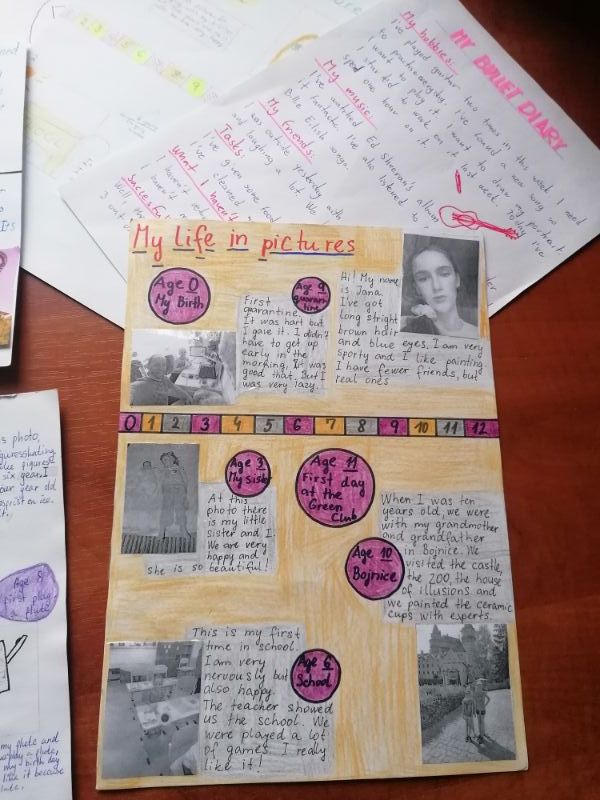 My Life in pictures
Age 0
My Birth
First
quarantine.
It was hart but
I gave it. I didn't
have to get up
early in the
morning. It was
good that, but I
was very lazy.
Age 9
quaran
tine
Hi! My name
is Jana.
I've got
long stright
brown hair
and blue eyes. I am very
sporty and I like painting.
I have fewer friends, but
real ones
0 1 2 3 4 5 6 7 8 9 10 11 12
Age 3
My sister
At this
photo there
is my little
sister and I.
We are very
happy and
she is so beautiful!
Age 11
First day
at the
Green
Club
When I was ten
years old, we were
with my grandmother
and grandfather
in Bojnice. We
visited the castle,
the ZOO, the house
of illusions and
we painted the ceramic
cups with experts.
Age 10
Bojnice
This is my first
time in school.
I am very
nervously but
also happy.
The teacher showed
us the school. We
were played a lot
of games. I really
like it!
Age 6
School
MY BULLET DIARY
My hobbies:
I've played guitar two times in this week. I need
to practise everyday. I've found a new song so
I want to play it. I want to draw my portrait
I started to work on it last week. Today I've
sped one hour on it.
My music:
I've watched Ed Sheeran's album
it fantastic. I've also listened to
Billie Eilish songs.
My friends:
I was outside yesterday with
and laughing a lot. We
Tasks:
I've given some food
cleaned
What I haven't
I haven't
s photo,
six year. I
our year old
on ice.
Age 8
first play
a flute
my flute and
play a flute,
my birth day
like it because